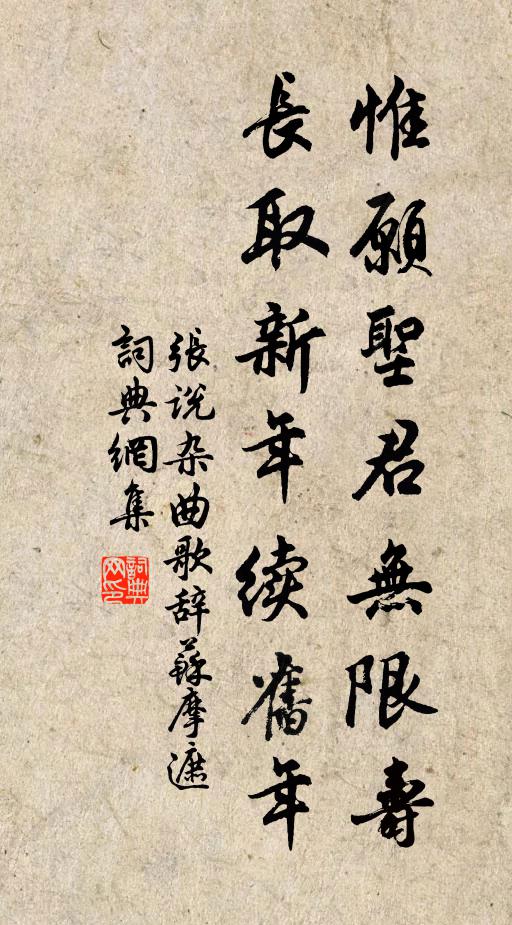 惟願聖君無限壽
長取新年續舊年
張说杂曲歌辞蘇摩遮
詞典網集
詞典网印